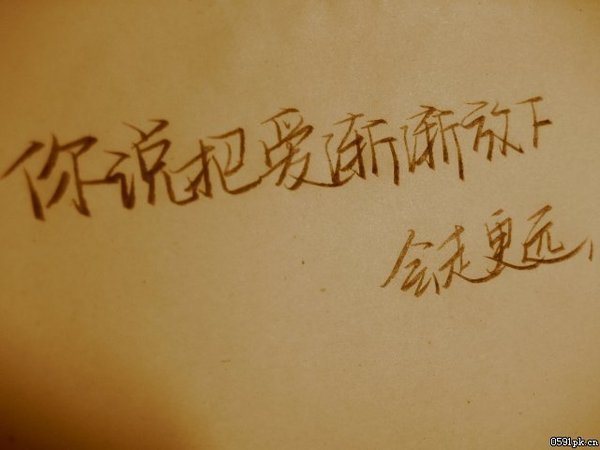 你说把爱渐渐放下
会走更远
0591pk.cn